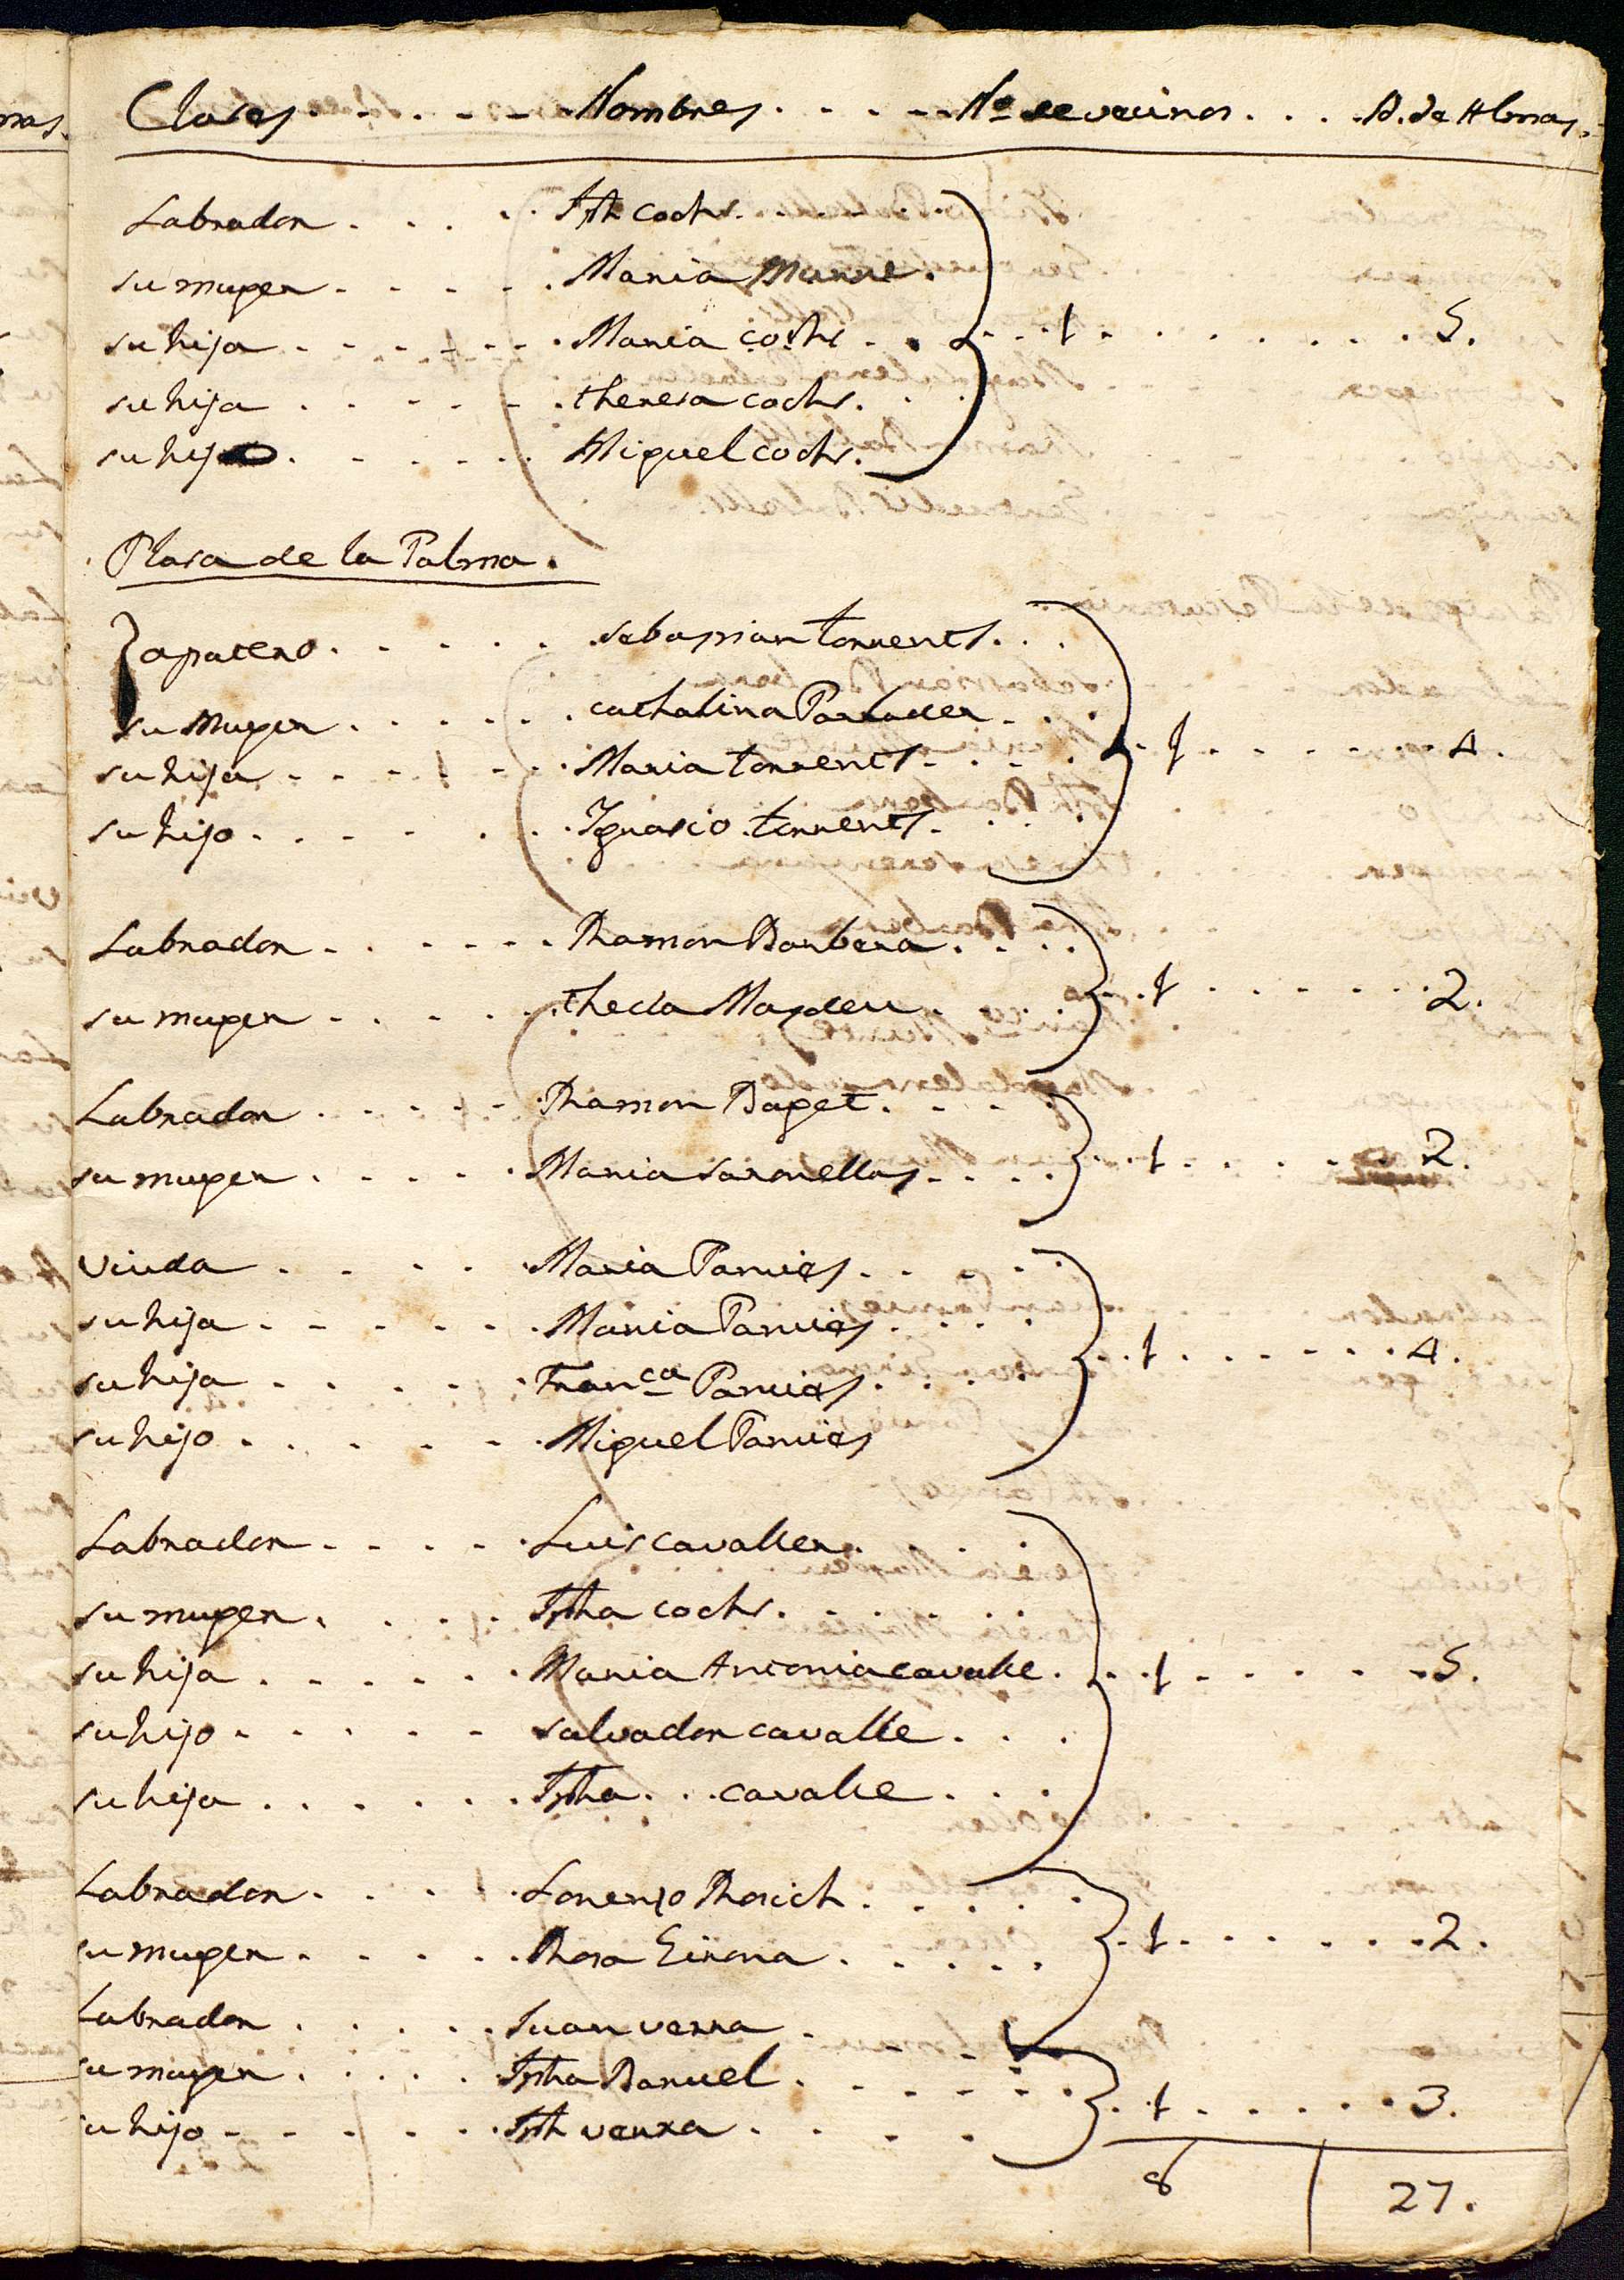 Clases. . . . . Nombres. . . . . No de vecinos. . . . N. de Almas.
Labrador . . . . . Jph cochs. . . . .
su muger . . . . . Maria Munne.
su hija . . . . . Maria cochs . . . . 1 . . . . . . . . 5.
su hija . . . . . theresa cochs. . .
su hijo . . . . . Miguel cochs.
Plasa de la Palma.
Zapatero . . . . . sebastian torrents. . .
su Muger . . . . . cathalina Parlader . . .
su hija . . . . . Maria torrents . . . . 1 . . . . . . 4.
su hijo . . . . . Ignasio torrents. . .
Labrador . . . . . Ramon Barbera. . . .
su muger . . . . . thecla Masdeu . . 1 . . . . . . . 2.
Labrador . . . . . Ramon Baget. . . .
su muger . . . . . Maria Saronellas. . . . 1 . . . . . . 2.
Viuda . . . . . Maria Pamies. . . . .
su hija . . . . . Maria Pamies. . . .
su hija . . . . . Franca Pamies. . . . 1 . . . . . . 4.
su hijo . . . . . Miguel Pamies
Labrador . . . . . Luis cavaller. . .
su muger . . . . . Jpha cochs. . . . .
su hija . . . . . Maria Antonia cavalle. . . 1 . . . . . . 5.
su hijo . . . . . salvador cavalle . . .
su hija . . . . . Jpha . . cavalle . . .
Labrador . . . . . Lorenzo Rosich . . . .
su muger . . . . . Rosa Girona . . . . . 1 . . . . . . 2.
Labrador . . . . . Juan verra . . .
su muger . . . . . Jpha Banuel . . . . . 1 . . . . . 3.
su hijo . . . . . Jph verra . . . .
8 | 27.